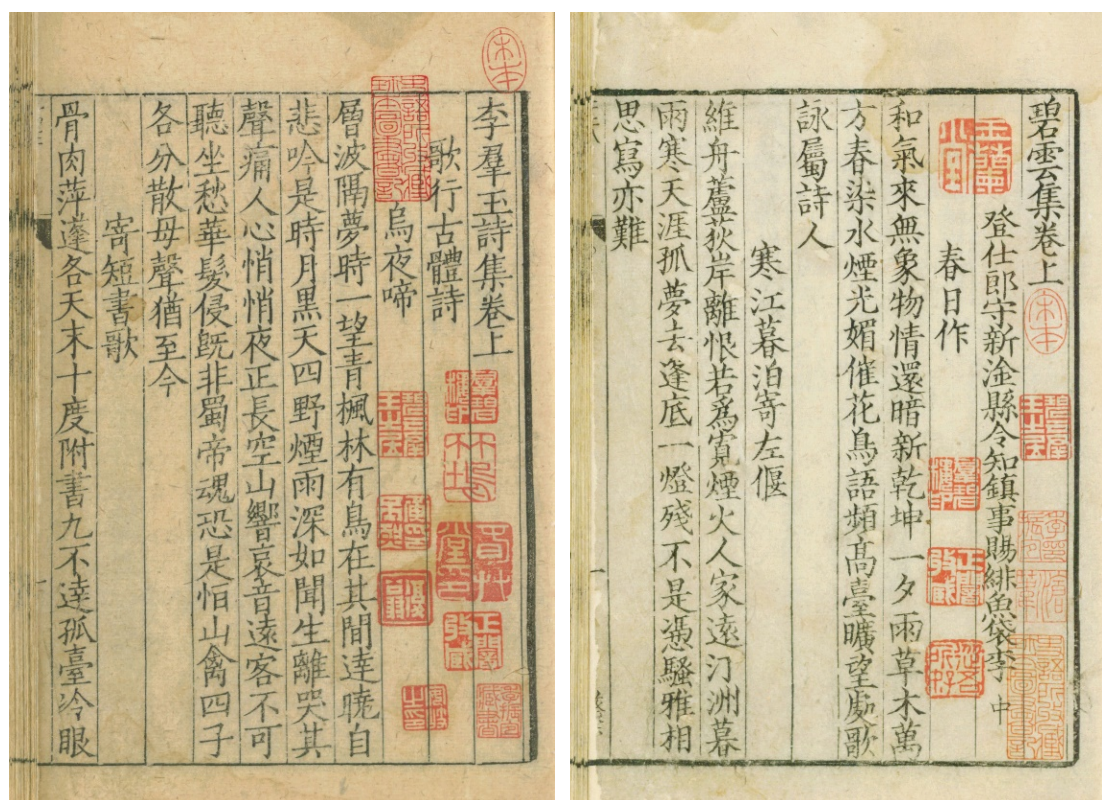 宋本
李羣玉詩集卷上
歌行古體詩
烏夜啼
層波隔夢時一望青楓林有鳥在其間逹曉自
悲吟是時月黑天四野煙雨深如聞生離哭其
聲痛人心悄悄夜正長空山響哀音遠客不可
聽坐愁華髮侵旣非蜀帝魂恐是恒山禽四子
各分散母聲猶至今
寄短書歌
骨肉萍蓬各天末十度附書九不逹孤臺冷眼
碧雲集卷上
宋本
登仕郎守新淦縣令知鎮事賜緋魚袋李中
春日作
和氣來無象物情還暗新乾坤一夕雨草木萬
方春染水煙光媚催花鳥語頻髙臺曠望處歌
詠屬詩人
寒江暮泊寄左偃
維舟蘆荻岸離恨若爲寬煙火人家遠汀洲暮
雨寒天涯孤夢去逢底一燈殘不是憑騷雅相
思寫亦難